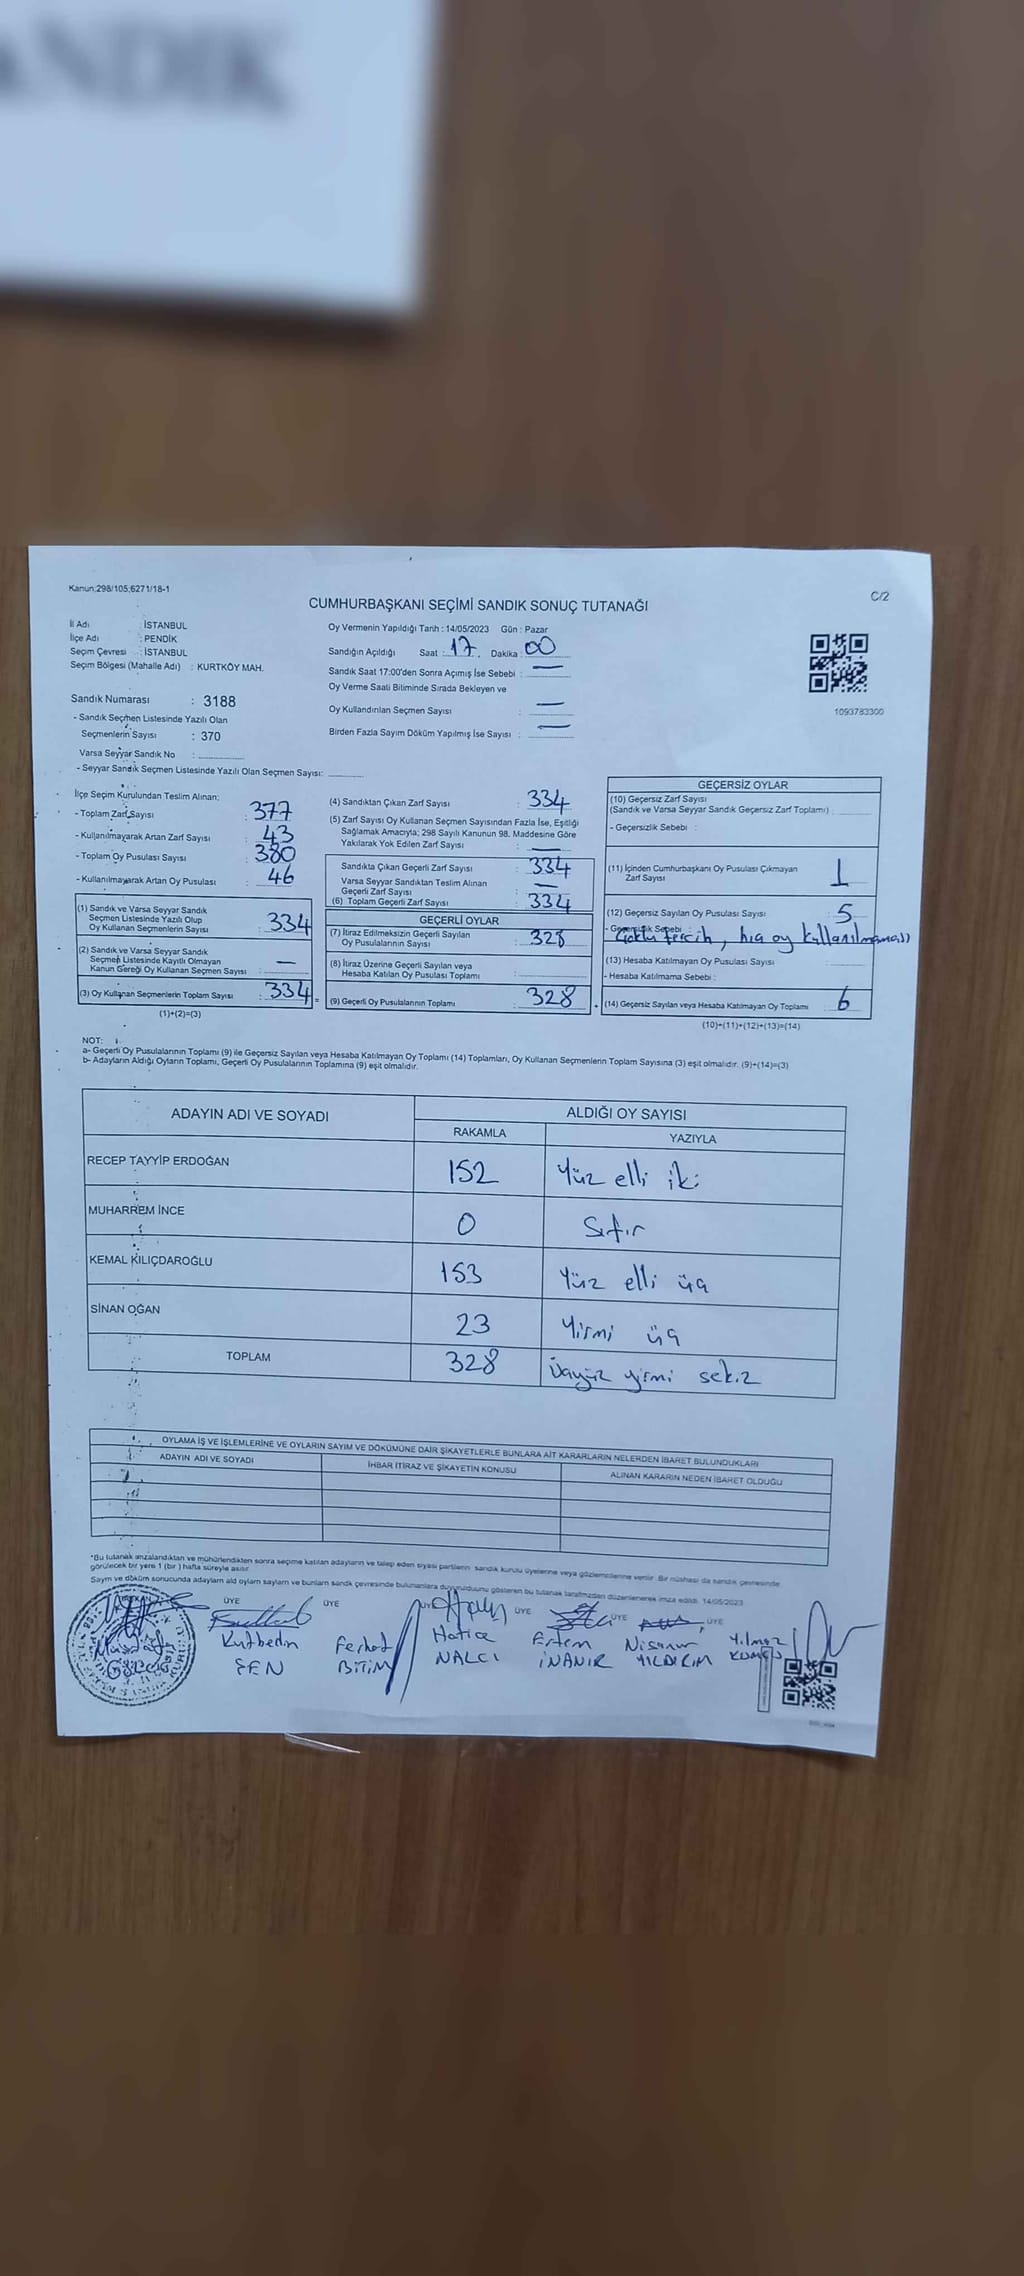 ANDIK
Kanun:298/105;6271/18-1
C/2
CUMHURBAŞKANI SEÇİMİ SANDIK SONUÇ TUTANAĞI
İl Adı : İSTANBUL
İlçe Adı : PENDİK
Seçim Çevresi : İSTANBUL
Seçim Bölgesi (Mahalle Adı) : KURTKÖY MAH.
Sandık Numarası : 3188
- Sandık Seçmen Listesinde Yazılı Olan
Seçmenlerin Sayısı : 370
Varsa Seyyar Sandık No :
- Seyyar Sandık Seçmen Listesinde Yazılı Olan Seçmen Sayısı:
Oy Vermenin Yapıldığı Tarih : 14/05/2023 Gün : Pazar
Sandığın Açıldığı Saat : 17 Dakika : 00
Sandık Saat 17:00'den Sonra Açımış İse Sebebi : —
Oy Verme Saati Bitiminde Sırada Bekleyen ve
Oy Kullandırılan Seçmen Sayısı : —
Birden Fazla Sayım Döküm Yapılmış İse Sayısı : —
1093783300
İlçe Seçim Kurulundan Teslim Alınan:
- Toplam Zarf Sayısı : 377
- Kullanılmayarak Artan Zarf Sayısı : 43
- Toplam Oy Pusulası Sayısı : 380
- Kullanılmayarak Artan Oy Pusulası : 46
(1) Sandık ve Varsa Seyyar Sandık
Seçmen Listesinde Yazılı Olup
Oy Kullanan Seçmenlerin Sayısı : 334
(2) Sandık ve Varsa Seyyar Sandık
Seçmen Listesinde Kayıtlı Olmayan
Kanun Gereği Oy Kullanan Seçmen Sayısı : —
(3) Oy Kullanan Seçmenlerin Toplam Sayısı : 334 =
(1)+(2)=(3)
(4) Sandıktan Çıkan Zarf Sayısı : 334
(5) Zarf Sayısı Oy Kullanan Seçmen Sayısından Fazla İse, Eşitliği
Sağlamak Amacıyla; 298 Sayılı Kanunun 98. Maddesine Göre
Yakılarak Yok Edilen Zarf Sayısı : —
Sandıkta Çıkan Geçerli Zarf Sayısı : 334
Varsa Seyyar Sandıktan Teslim Alınan
Geçerli Zarf Sayısı : —
(6) Toplam Geçerli Zarf Sayısı : 334
GEÇERLİ OYLAR
(7) İtiraz Edilmeksizin Geçerli Sayılan
Oy Pusulalarının Sayısı : 328
(8) İtiraz Üzerine Geçerli Sayılan veya
Hesaba Katılan Oy Pusulası Toplamı :
(9) Geçerli Oy Pusulalarının Toplamı : 328 +
GEÇERSİZ OYLAR
(10) Geçersiz Zarf Sayısı
(Sandık ve Varsa Seyyar Sandık Geçersiz Zarf Toplamı) :
- Geçersizlik Sebebi :
(11) İçinden Cumhurbaşkanı Oy Pusulası Çıkmayan
Zarf Sayısı : 1
(12) Geçersiz Sayılan Oy Pusulası Sayısı : 5
- Geçersizlik Sebebi : Çoklu tercih, hiç oy kullanılmaması
(13) Hesaba Katılmayan Oy Pusulası Sayısı :
- Hesaba Katılmama Sebebi :
(14) Geçersiz Sayılan veya Hesaba Katılmayan Oy Toplamı : 6
(10)+(11)+(12)+(13)=(14)
NOT:
a- Geçerli Oy Pusulalarının Toplamı (9) ile Geçersiz Sayılan veya Hesaba Katılmayan Oy Toplamı (14) Toplamları, Oy Kullanan Seçmenlerin Toplam Sayısına (3) eşit olmalıdır. (9)+(14)=(3)
b- Adayların Aldığı Oyların Toplamı, Geçerli Oy Pusulalarının Toplamına (9) eşit olmalıdır.
ADAYIN ADI VE SOYADI ALDIĞI OY SAYISI
RAKAMLA YAZIYLA
RECEP TAYYİP ERDOĞAN 152 Yüz elli iki
MUHARREM İNCE 0 Sıfır
KEMAL KILIÇDAROĞLU 153 Yüz elli üç
SİNAN OĞAN 23 Yirmi üç
TOPLAM 328 Üçyüz yirmi sekiz
OYLAMA İŞ VE İŞLEMLERİNE VE OYLARIN SAYIM VE DÖKÜMÜNE DAİR ŞİKAYETLERLE BUNLARA AİT KARARLARIN NELERDEN İBARET BULUNDUKLARI
ADAYIN ADI VE SOYADI İHBAR İTİRAZ VE ŞİKAYETİN KONUSU ALINAN KARARIN NEDEN İBARET OLDUĞU
*Bu tutanak imzalandıktan ve mühürlendikten sonra seçime katılan adayların ve talep eden siyasi partilerin sandık kurulu üyelerine veya gözlemcilerine verilir. Bir nüshası da sandık çevresinde
görülecek bir yere 1 (bir) hafta süreyle asılır.
Sayım ve döküm sonucunda adayların aldı oyların sayılarını ve bunların sandık çevresinde bulunanlara duyurulduğunu gösteren bu tutanak tarafımızdan düzenlenerek imza edildi. 14/05/2023
BAŞKAN ÜYE ÜYE ÜYE ÜYE ÜYE ÜYE
Mustafa Kutbedin Ferhat Hatice Ertem Nisanur Yılmaz
ŞEN BİTİM NALCI İNANIR YILDIRIM